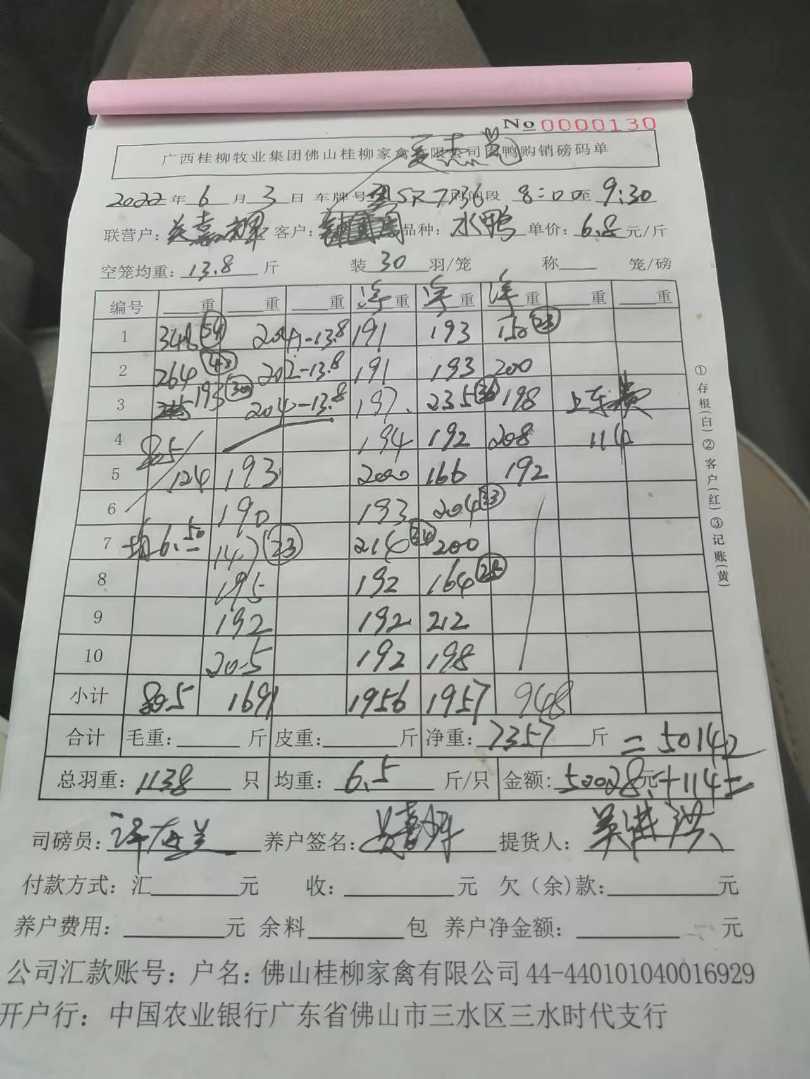 No 0000130
广西桂柳牧业集团佛山桂柳家禽有限公司肉鸭购销磅码单
2022年6月3日 车牌号 SR7736 时间段 8:00至9:30
联营户: 客户: 品种:水鸭 单价:6.8元/斤
空笼均重:13.8斤 装30羽/笼 称 笼/磅
编号 重 重 重 净重 净重 净重 重 重
1 348 (54) 204-13.8 191 193 150 (23)
2 264 (42) 202-13.8 191 193 200
3 193 (30) 204-13.8 197 235 (36) 198 上车费
4 805 194 192 208 114
5 124 193 2000 166 192
6 190 193 204 (33)
7 均6.50 147 (23) 214 (34) 200
8 195 192 164 (25)
9 192 192 212
10 205 192 198
小计 805 1691 1956 1957 948
合计 毛重: 斤 皮重: 斤 净重:7357斤 =50142
总羽重:1138只 均重:6.5斤/只 金额:50028元+114=
司磅员: 养户签名: 提货人:
付款方式:汇 元 收: 元 欠(余)款: 元
养户费用: 元 余料 包 养户净金额: 元
公司汇款账号:户名:佛山桂柳家禽有限公司 44-440101040016929
开户行:中国农业银行广东省佛山市三水区三水时代支行
①存根(白)②客户(红)③记账(黄)